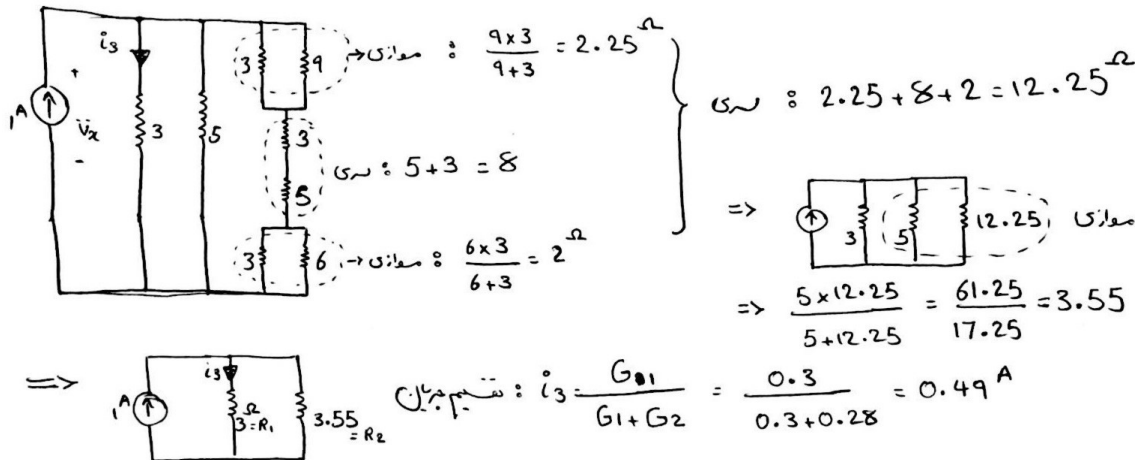 i3
1A
+
Vx
-
3
5
3 9 → موازی : 9×3 / 9+3 = 2.25Ω
3
5
سری : 5+3 = 8
3 6 → موازی : 6×3 / 6+3 = 2Ω
سری : 2.25+8+2 = 12.25Ω
=> 3 5 12.25 موازی
=> 5×12.25 / 5+12.25 = 61.25 / 17.25 = 3.55
=> 1A i3 3Ω=R1 3.55=R2 تقسیم جریان : i3 = G1 / G1+G2 = 0.3 / 0.3+0.28 = 0.49 A